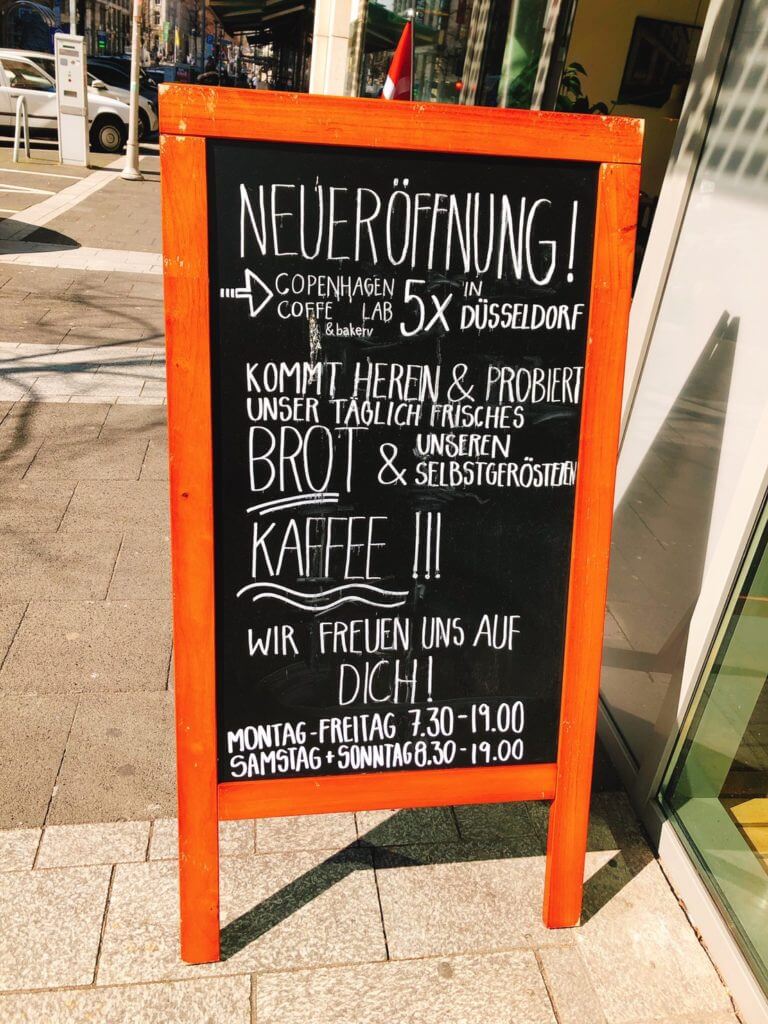 NEUERÖFFNUNG!
COPENHAGEN
COFFE LAB
& bakery
5X
IN
DÜSSELDORF
KOMMT HEREN & PROBIERT
UNSER TÄGLICH FRISCHES
BROT & UNSEREN
SELBSTGERÖSTETEN
KAFFEE !!!
WIR FREUEN UNS AUF
DICH!
MONTAG-FREITAG 7.30-19.00
SAMSTAG + SONNTAG 8.30-19.00